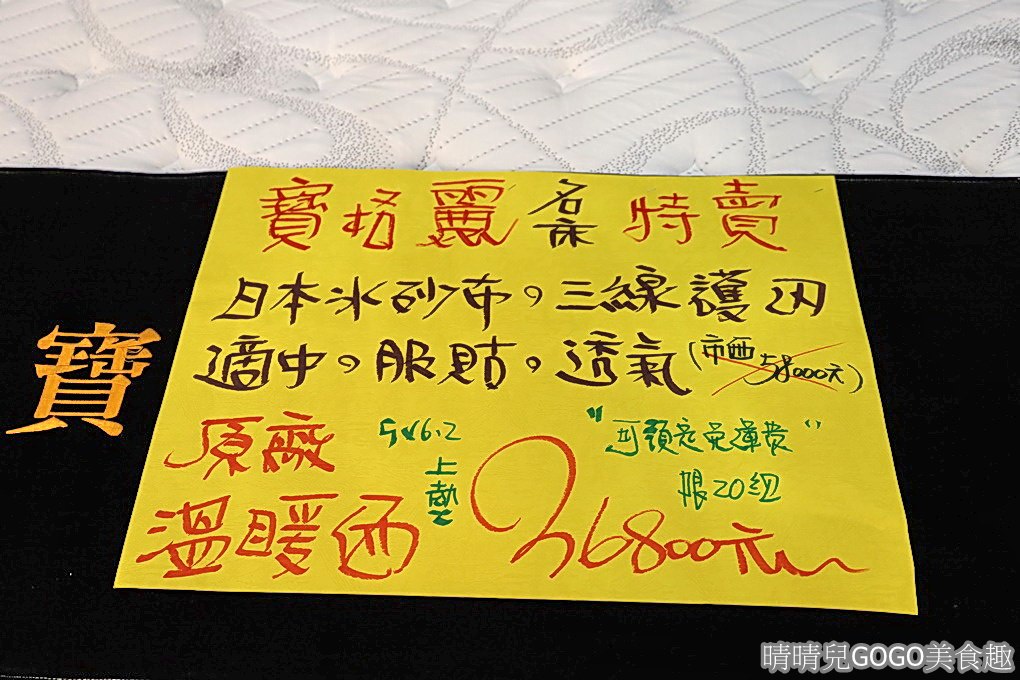 寶格麗名床特賣
日本冰砂布,三線護
適中。服貼。透氣(市価58000元)
寶
原廠 5x6.2 "可預定免運費"
上墊 限20組
溫暖価 26800元
晴晴兒GOGO美食趣